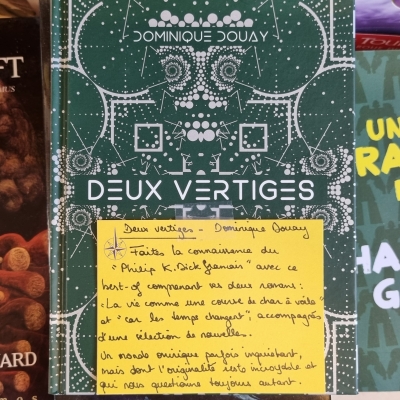 DOMINIQUE DOUAY
DEUX VERTIGES
Deux vertiges - Dominique Douay
Faites la connaissance du
"Philip K. Dick français" avec ce
best-of comprenant ses deux romans :
"La vie comme une course de char à voile"
et "car les temps changent", accompagnés
d'une sélection de nouvelles.
Un monde onirique parfois inquiétant,
mais dont l'originalité reste incroyable et
qui nous questionne toujours autant.
FT
ARD
TOU
UN
RA
HA
G